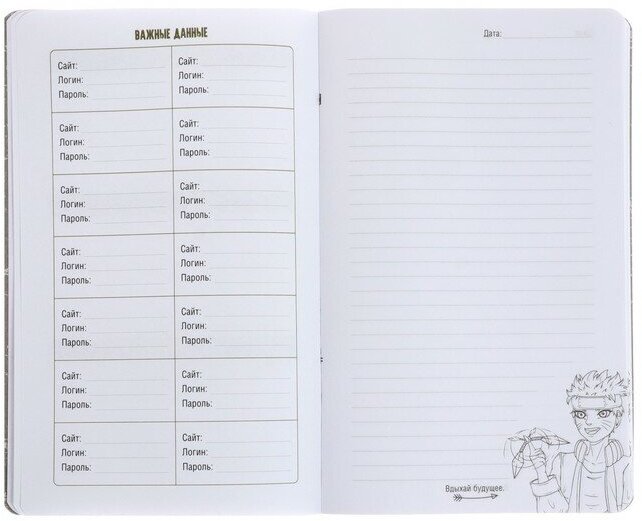 ВАЖНЫЕ ДАННЫЕ
Сайт:
Логин:
Пароль:
Сайт:
Логин:
Пароль:
Сайт:
Логин:
Пароль:
Сайт:
Логин:
Пароль:
Сайт:
Логин:
Пароль:
Сайт:
Логин:
Пароль:
Сайт:
Логин:
Пароль:
Сайт:
Логин:
Пароль:
Сайт:
Логин:
Пароль:
Сайт:
Логин:
Пароль:
Сайт:
Логин:
Пароль:
Сайт:
Логин:
Пароль:
Сайт:
Логин:
Пароль:
Сайт:
Логин:
Пароль:
Дата:
Вдыхай будущее.